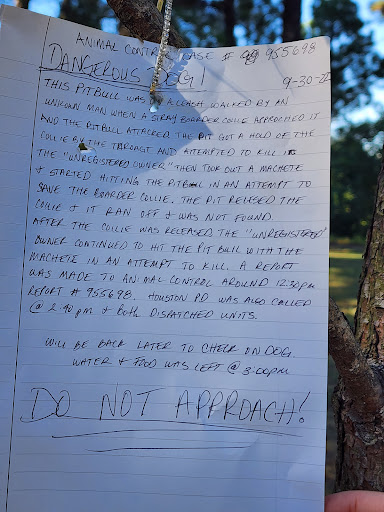 ANIMAL CONTROL CASE # 955698
DANGEROUS DOG!
9-30-22
THIS PITBULL WAS A LEASH WALKED BY AN
UNKOWN MAN WHEN A STRAY BOARDER COLLIE APPROACHED IT
AND THE PITBULL ATTACKED. THE PIT GOT A HOLD OF THE
COLLIE BY THE THROAGT AND ATTEMPTED TO KILL IT.
THE "UNREGISTERED OWNER" THEN TOOK OUT A MACHETE
& STARTED HITTING THE PITBULL IN AN ATTEMPT TO
SAVE THE BOARDER COLLIE. THE PIT RELESED THE
COLLIE & IT RAN OFF & WAS NOT FOUND.
AFTER THE COLLIE WAS RELEASED THE "UNREGISTERED"
OWNER CONTINUED TO HIT THE PIT BULL WITH THE
MACHETE IN AN ATTEMPT TO KILL. A REPORT
WAS MADE TO ANIMAL CONTROL AROUND 12:30pm
REPORT # 955698. HOUSTON PD WAS ALSO CALLED
@ 2:40 pm & BOTH DISPATCHED UNITS.
WILL BE BACK LATER TO CHECK ON DOG.
WATER & FOOD WAS LEFT @ 3:00pm
DO NOT APPROACH!